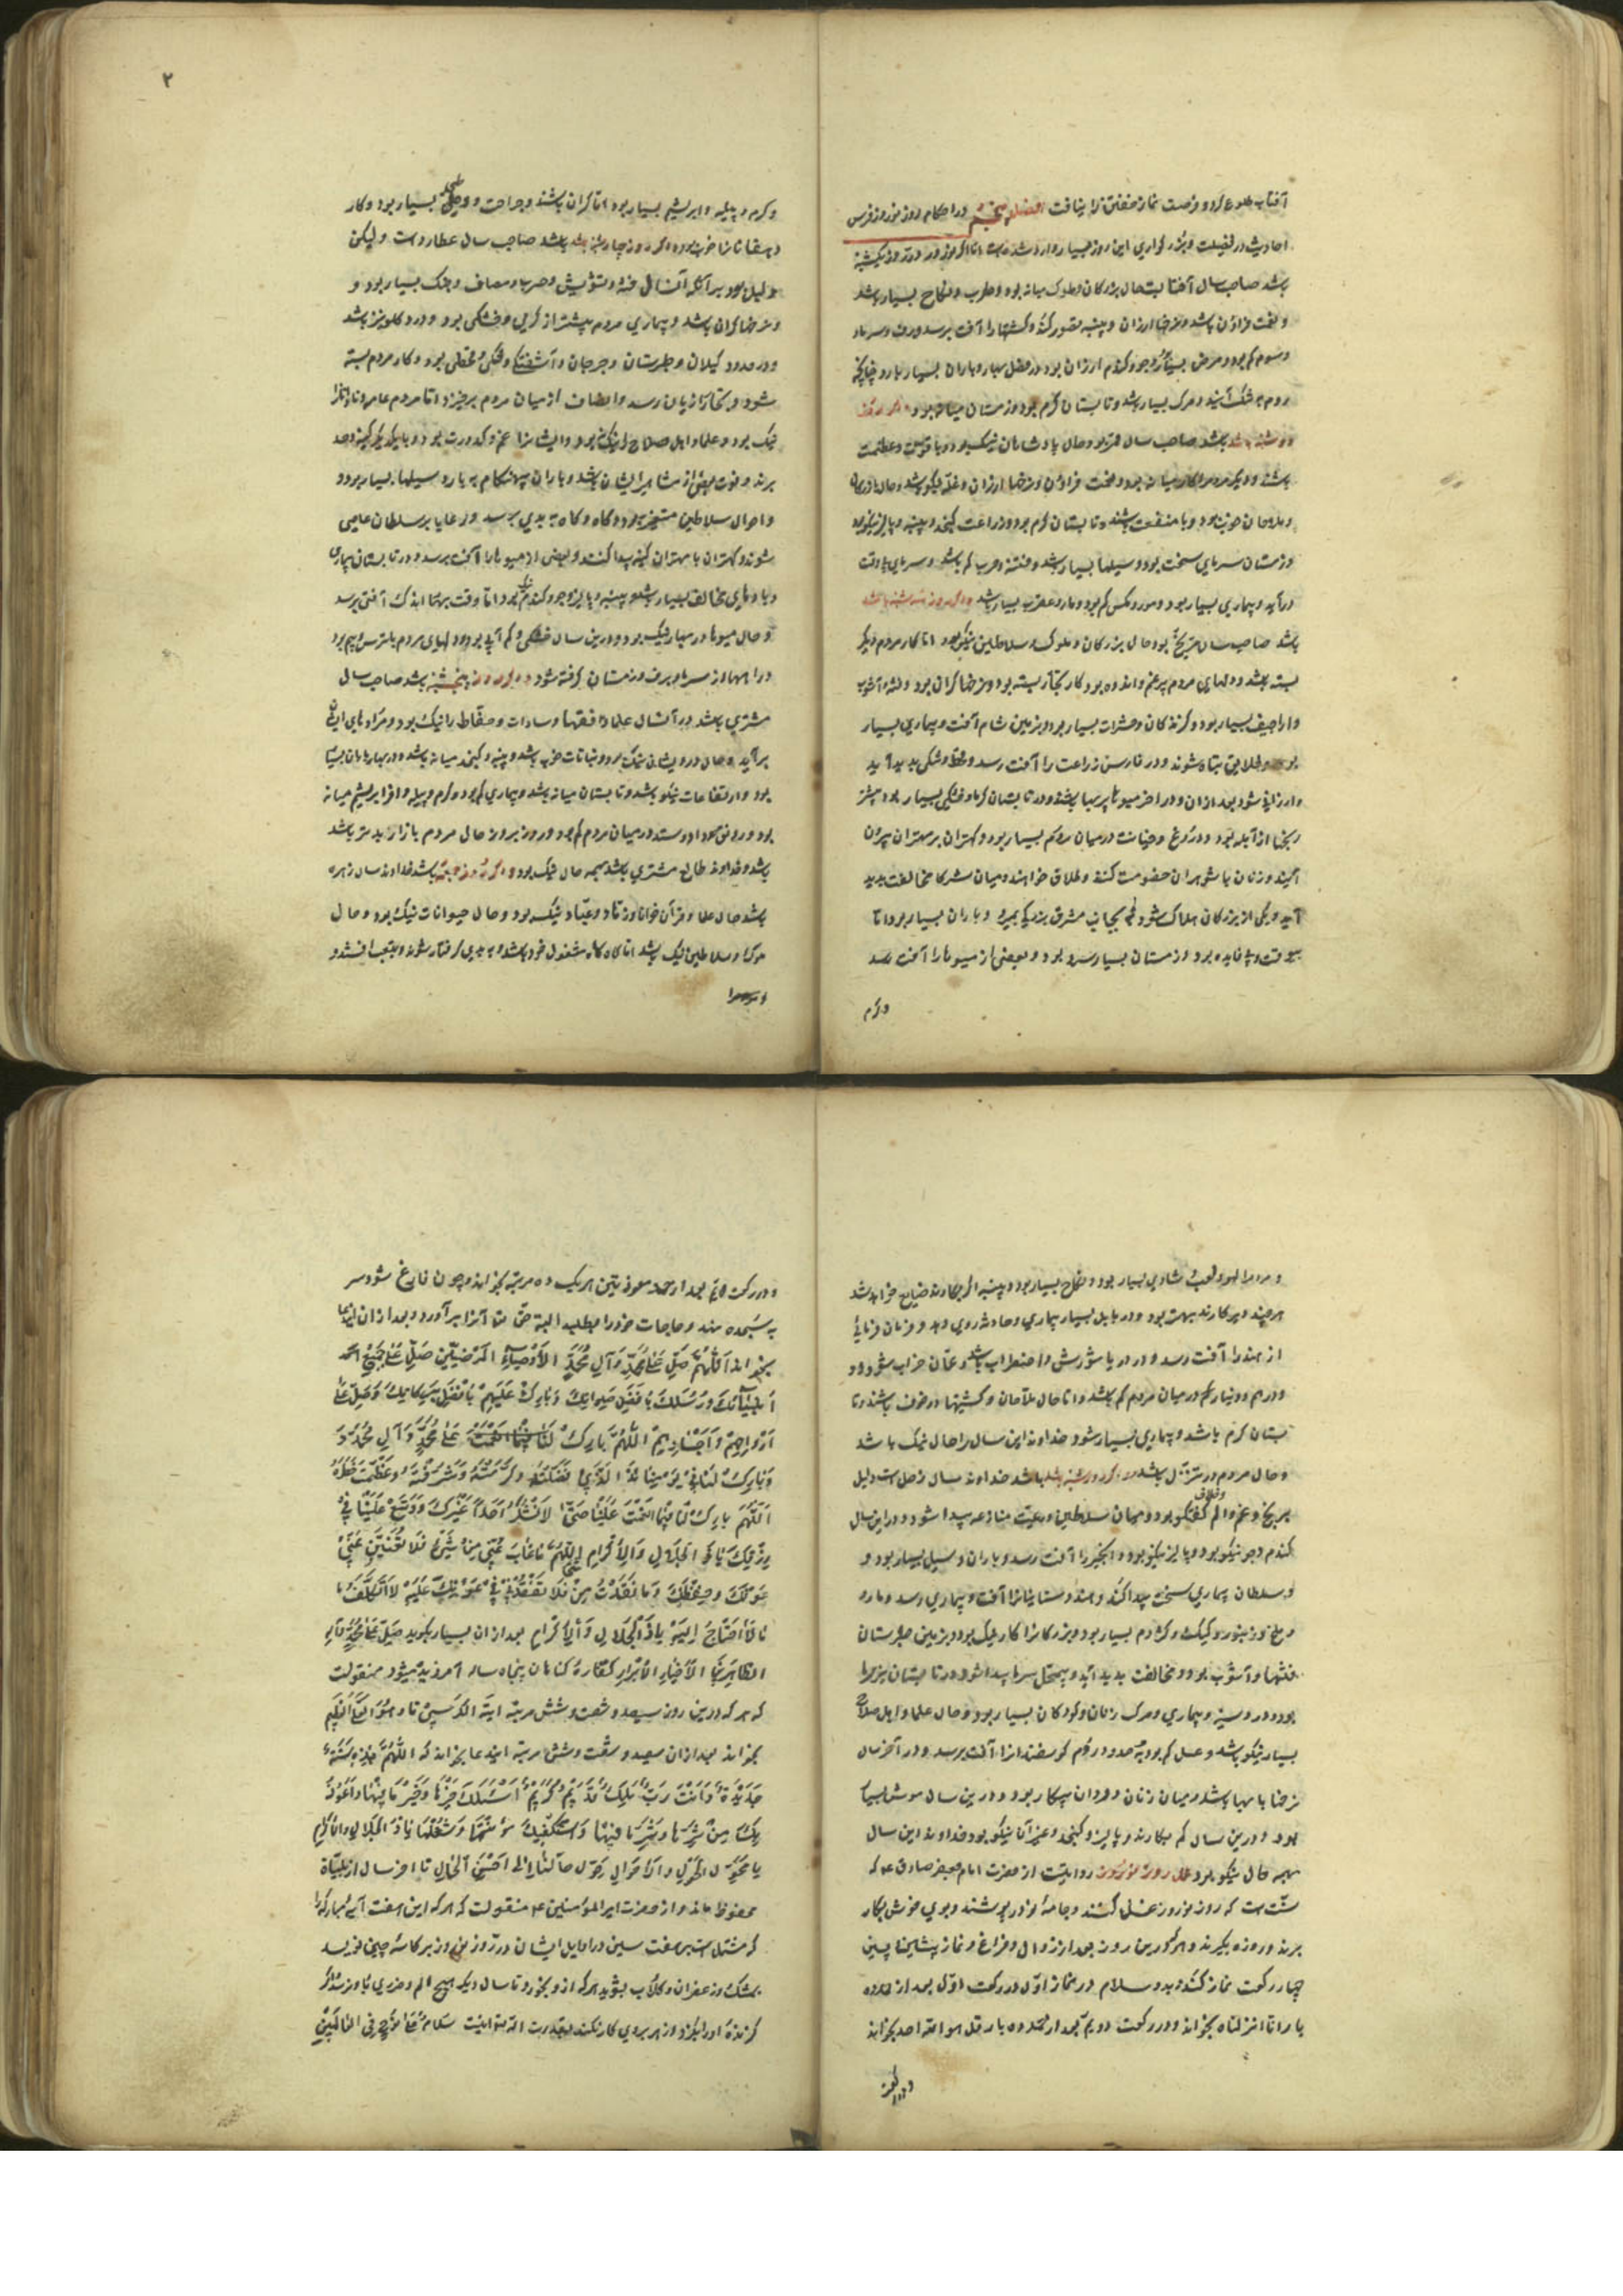 آفتاب طلوع کرد و فرصت نماز خفتن را نیافت فصل پنجم در احکام روز نوروز فرس
احادیث در فضیلت و بزرگواری این روز بسیار وارد شده است اما اگر نوروز در روز یکشنبه
باشد صاحب سال آفتابست حال بزرگان و ملوک میانه بود و طرب و نکاح بسیار باشد
و نعمت فراوان باشد و نرخها ارزان و پنبه قصور کند و کشتها را آفت برسد و برف و سرما و
و سموم کم بود و مرض بسیار و جو و گندم ارزان بود در فصل بهار و باران بسیار بارد چنانکه
مردم به تنگ آیند و مرگ بسیار باشد و تابستان گرم بود و زمستان میانه بود و اگر روز
دوشنبه باشد صاحب سال قمر بود و حال پادشاهان نیک بود و با قوت و عظمت
باشند و دیگر مردم را کار میانه بود و نعمت فراوان و نرخها ارزان و غله نیکو باشد و حال بازرگانان
و ملاحان خوب بود و با منفعت باشند و تابستان گرم بود و زراعت کنجد و پنبه و پالیز نیکو بود
و زمستان سرمای سخت بود و سیلها بسیار باشد و فتنه و حرب کم باشد و سرمای بی وقت
در آید و بیماری بسیار بود و مور و مگس کم بود و مار و عقرب بسیار باشد و اگر روز سه شنبه باشد
باشد صاحب سال مریخ بود حال بزرگان و ملوک و سلاطین نیکو بود اما کار مردم دیگر
بسته باشد و دلهای مردم پر غم و اندوه بود کار تجار بسته بود و نرخها گران بود و فتنه و آشوب
و اراجیف بسیار بود و گزندگان و حشرات بسیار بود و بزمین شام آفت و بیماری بسیار
بود و خلایق تباه شوند و در فارس زراعت را آفت رسد و قحط و خشکی پدید آید
و ارزانی شود بعد از ان و در آخر میوها پر بها باشند و در تابستان گرما و خشکی بسیار بود بیشتر
رنجها از آبله بود و دروغ و خیانت در میان مردم بسیار بود و کهتران بر مهتران بیرون
آیند و زنان با شوهران خصومت کنند و طلاق خواهند و میان شرکا مخالفت پدید
آید و یکی از بزرگان هلاک شود و بجانب مشرق بزرگی بمیرد و باران بسیار بود اما
بیوقت و بی فایده بود و زمستان بسیار سرد بود و بعضی از میوها را آفت رسد
و کرم
۲
و کرم و پیله و ابریشم بسیار بود اما گران باشند و جراحت و بسیار بود و کار
دهقانان خوب بود و اگر روز چهارشنبه باشد باشد صاحب سال عطارد است و لیکن
دلیل بود بر آنکه آنسال فتنه و تشویش و حرب و مصاف و جنگ بسیار بود و
و نرخها گران باشد و بیماری مردم بیشتر از گرمی و خشکی بود و درد گلو نیز باشد
و در حدود گیلان و طبرستان و جرجان و آشفتگی و تنگی و قحطی بود و کار مردم بسته
شود و تجار را زیان رسد و انصاف از میان مردم برخیزد و اما مردم عامه و
نیک بود و علما و اهل صلاح را نیک بود و ایشان را غم و کدورت بود و با یکدیگر کینه و حسد
برند و فوت بعضی از مشاهیر ایشان باشد و باران بهنگام به بارد سیلها بسیار بود و
و احوال سلاطین متغیر بود و گاه و گاه به بدی برسد و رعایا بر سلطان عاصی
شوند و کهتران با مهتران کینه پیدا کنند و بعضی از میوها را آفت برسد و در تابستان بیماری
و بادهای مخالف بسیار باشد و پنبه و پالیز و جو و گندم بود اما وقت برها اندک آفتی برسد
و حال میوها در بهار نیک بود و درین سال خشکی و کم آبی بود و دلهای مردم با ترس و بیم بود
و راهها از سرما و برف و زمستان گرفته شود و اگر روز پنجشنبه باشد صاحب سال
مشتری باشد در آنسال علما و فقها و سادات و حفاظ را نیک بود و مرادهای ایشان
برآید و حال درویشان نیک بود و نباتات خوب باشد و پنبه و کنجد میانه باشد و در بهار باران بسیار
بود و ارتفاعات نیکو باشد و تابستان میانه باشد و بیماری کم بود و کرم و پیله و قز ابریشم میانه
بود و رونق سودا و ستد در میان مردم کم بود و روز بروز حال مردم بازار بهتر باشد
باشد و خداوند طالع مشتری باشد همه حال نیک بود و اگر روز جمعه باشد خداوند سال زهره
باشد حال علما و قرآن خوانان و زهاد و عباد نیک بود و حال حیوانات نیک بود و حال
ملوک و سلاطین نیک باشد اما گاه گاه مشغول خود باشند و به بدی گرفتار شوند و بتعب افتند و
و مردم را
و مردم را لهو و لعب و شادی بسیار بود و نکاح بسیار بود و پنبه اگر بکارند ضایع خواهد شد
هر چند دیر کارند بهتر بود و در بابل بسیار بیماری و حادثه روی دهد و فرمان فرمای
از هند را آفت رسد و در دریا شورش و اضطراب باشد و عمان خراب شود و
و درم و دینار کم در میان مردم کم باشد و اما حال ملاحان و کشتیها در خوف باشند و تا
بستان گرم باشد و بیماری بسیار شود خداوند این سال را حال نیک باشد
و حال مردم در تنزل باشد و اگر روز شنبه باشد باشد خداوند سال زحل است دلیل
بر رنج و غم و الم و گفتگو بود و میان سلاطین و رعیت منازعه پیدا شود و در این سال
گندم و جو نیکو بود و پالیز نیکو بود و انجیر را آفت رسد و باران و سیل بسیار بود و
و سلطان بیماری سخت پیدا کند و هندوستانیان را آفت و بیماری رسد و مار و
و ملخ و زنبور و کیک و کژدم بسیار بود و بزرگان را کار نیک بود و بزمین طبرستان
فتنها و آشوب بود و مخالفت پدید آید و بیمحل سرما پیدا شود و در تابستان نیز سرما
بود و درد سینه و بیماری و مرگ زنان و کودکان بسیار بود و حال علما و اهل صلاح
بسیار نیکو باشد و عسل کم بود به حدود روم گوسفندان را آفت برسد و در آخر سال
نرخها با بها باشد و میان زنان و مردان پیکار بود و درین سال موش بسیار
بود و درین سال کم بکارند و پالیز و کنجد و غیر آن نیکو بود خداوند این سال
بهمه حال نیکو بود عمل روز نوروز روایتست از حضرت امام جعفر صادق ع م که
سنت است که روز نوروز غسل کنند و جامهٔ نو در پوشند و بوی خوش بکار
برند و روزه بگیرند و هر که درین روز بعد از زوال و فراغ و نماز پیشین و پسین
چهار رکعت نماز کند بدو سلام در نماز اول در رکعت اول بعد از حمد ده
بار انا انزلناه بخواند و در رکعت دویم بعد از حمد ده بار قل هو الله احد بخواند
و در رکعت
و در رکعت بعد از حمد معوذتین هر یک ده مرتبه بخواند و چون فارغ شود سر
به سجده نهد و حاجات خود را بطلبد البته حق تعالی آن را برآورد و بعد از ان این دعا
بخواند اَللّهُمَّ صَلِّ عَلی مُحَمَّدٍ وَآلِ مُحَمَّدٍ الاَوْصِیاءِ المَرْضِیّینَ صَلِّ عَلی جَمیعِ
اَنْبِیائِکَ وَرُسُلِکَ بِاَفْضَلِ صَلَواتِکَ وَبارِکْ عَلَیْهِمْ بِاَفْضَلِ بَرَکاتِکَ وَصَلِّ عَلی
اَرْواحِهِمْ وَاَجْسادِهِمْ اَللّهُمَّ بارِکْ عَلی مُحَمَّدٍ وَآلِ مُحَمَّدٍ وَ
وَبارِکْ لَنا فی یَوْمِنا هذَا الَّذی فَضَّلْتَهُ وَکَرَّمْتَهُ وَشَرَّفْتَهُ وَعَظَّمْتَ خَطَرَهُ
اَللّهُمَّ بارِکْ لَنا فیما اَنْعَمْتَ عَلَیْنا حَتّی لا اَشْکُرَ اَحَداً غَیْرَکَ وَوَسِّعْ عَلَیْنا فی
رِزْقِکَ یا ذَا الجَلالِ وَالاِکْرامِ اَللّهُمَّ ما غابَ عَنّی مِنْ شَیْءٍ فَلا تُغَیِّبَنَّ عَنّی
عَوْنَکَ وَحِفْظَکَ وَما فَقَدْتُ مِنْ فَلا تُفْقِدْنی عَوْنَکَ عَلَیْهِ لا اَتَکَلَّفَ ما
لا اَحْتاجُ اِلَیْهِ یا ذَا الْجَلالِ وَالْاِکْرامِ بعد از ان بسیار بگوید صَلِّ عَلی مُحَمَّدٍ وَآلِهِ
الطّاهِرینَ الاَخْیارِ الاَبْرارِ کفارهٔ گناهان پنجاه ساله آمرزیده میشود منقولست
که هر که درین روز سیصد و شصت و شش مرتبه ایة الکرسی تا و هو العلی العظیم
بخواند بعد از ان سیصد و شصت و شش مرتبه ایندعا بخواند که اَللّهُمَّ هذِهِ سَنَةٌ
جَدیدَةٌ وَاَنْتَ رَبٌّ قَدیمٌ کَریمٌ اَسْئَلُکَ خَیْرَها وَخَیْرَ ما فیها وَاَعُوذُ
بِکَ مِنْ شَرِّها وَشَرِّ ما فیها وَاَسْتَکْفیکَ مَؤُنَتَها وَشُغْلَها یا ذَا الجَلالِ وَالاِکْرامِ
یا مُحَوِّلَ الحَوْلِ وَالاَحْوالِ حَوِّلْ حالَنا اِلی اَحْسَنِ الْحالِ تا آخر سال از بلیات
محفوظ ماند و از حضرت امیر المؤمنین ع م منقولست که هر که این هفت آیهٔ مبارکه را
که مشتمل است بر هفت سین در اوایل ایشان در روز نوروز بر کاسهٔ چینی نویسد
بمشک و زعفران و گلاب بشوید هر که ازو بخورد تا سال دیگر هیچ الم و ضرری باو نرسد و اگر
گزندهٔ او را بگزد و زهر بروی کار نکند بقدرت الله تعالی اینست سَلامٌ عَلی نُوحٍ فی العالَمینَ